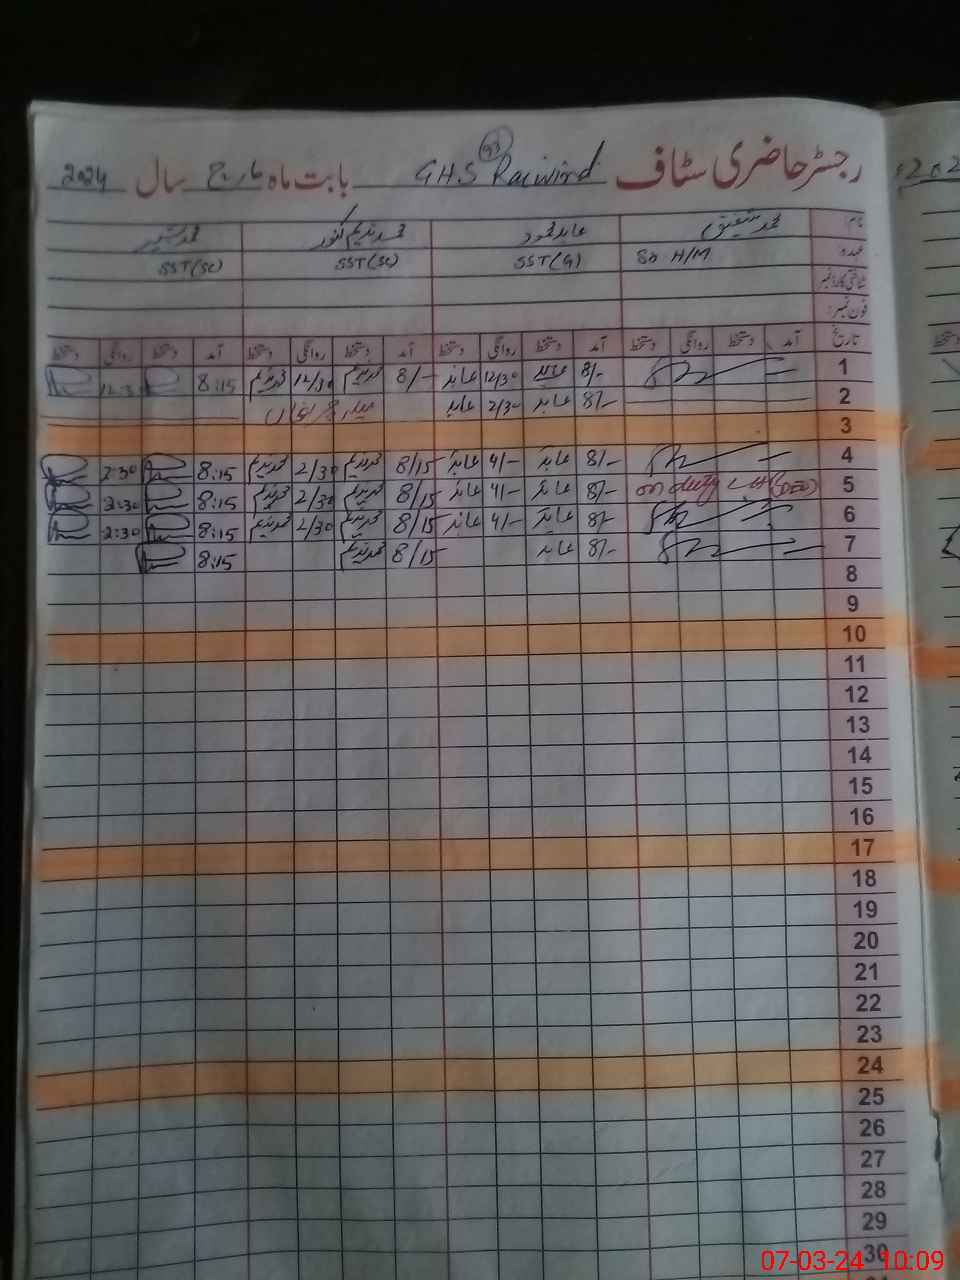 93
رجسٹر حاضری سٹاف GHS Raiwind بابت ماہ مارچ سال 2024
نام محمد شفیق عابد محمود محمد ندیم کنور محمد
عہدہ Sr H/M SST(G) SST(SC) SST(SC)
شناختی کارڈ نمبر
فون نمبر:
تاریخ آمد دستخط روانگی دستخط آمد دستخط روانگی دستخط آمد دستخط روانگی دستخط آمد دستخط روانگی دستخط
1 8/- عابد 12/30 عابد 8/- محمد ندیم 12/30 محمد ندیم 8:15 12:30
2 8/- عابد 2/30 عابد
3
4 8/- عابد 4/- عابد 8/15 محمد ندیم 2/30 محمد ندیم 8:15 2:30
5 on duty (DEO) 8/- عابد 4/- عابد 8/15 محمد ندیم 2/30 محمد ندیم 8:15 2:30
6 8/- عابد 4/- عابد 8/15 محمد ندیم 2/30 محمد ندیم 8:15 2:30
7 8/- عابد 8/15 محمد ندیم 8:15
8
9
10
11
12
13
14
15
16
17
18
19
20
21
22
23
24
25
26
27
28
29
30
07-03-24 10:09